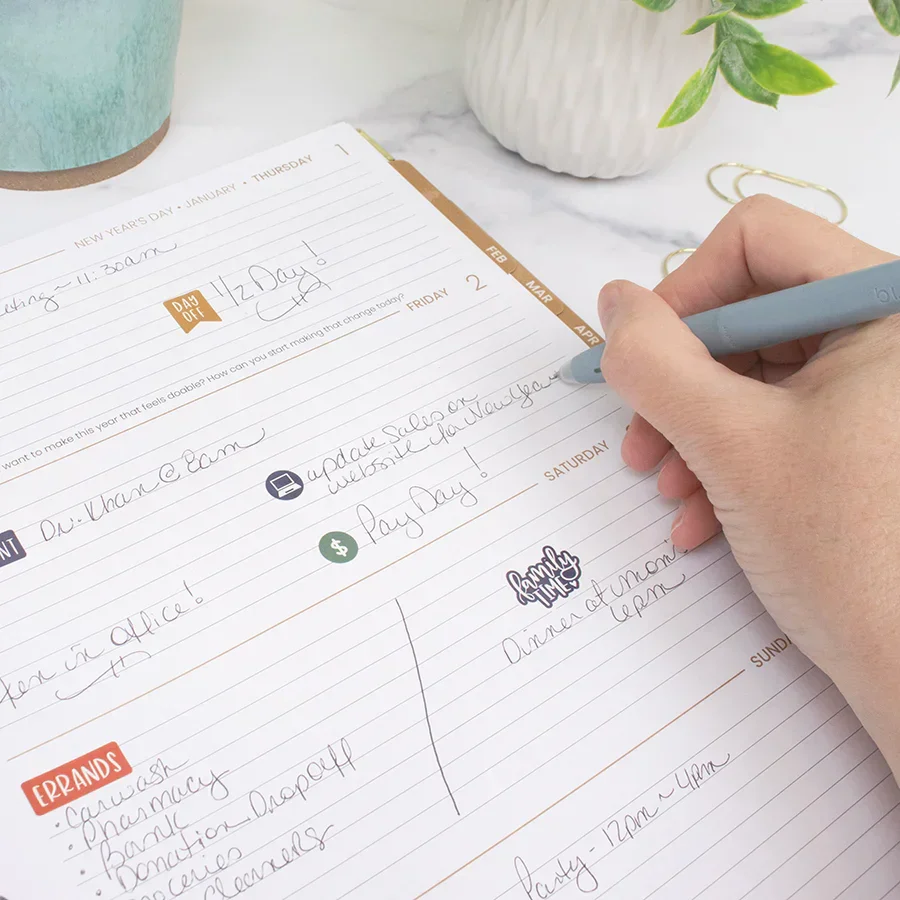 NEW YEAR'S DAY • JANUARY • THURSDAY 1
~ 11:30am
DAY OFF
1/2 Day!
want to make this year that feels doable? How can you start making that change today?
FRIDAY 2
FEB
MAR
APR
Dr. Khan @ 8am
update sales on
website for New Year
$
Pay Day!
in office!
SATURDAY
family
TIME
Dinner at mom's
6pm
ERRANDS
• carwash
• Pharmacy
• Bank
• Donation Dropoff
Cleaners
Party - 12pm ~ 4pm